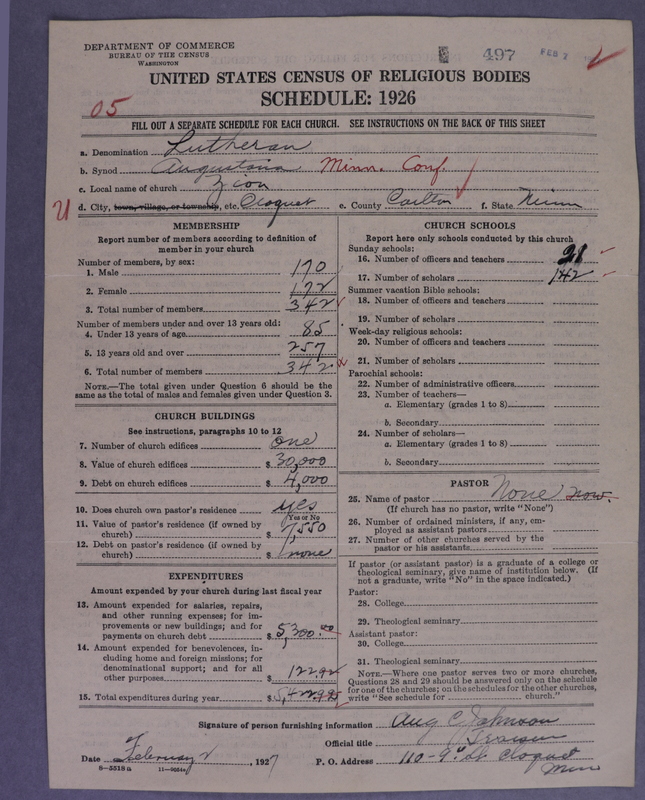 DEPARTMENT OF COMMERCE
BUREAU OF THE CENSUS
WASHINGTON
497 FEB 2
UNITED STATES CENSUS OF RELIGIOUS BODIES
SCHEDULE: 1926
05
FILL OUT A SEPARATE SCHEDULE FOR EACH CHURCH. SEE INSTRUCTIONS ON THE BACK OF THIS SHEET
a. Denomination Lutheran
b. Synod Augustana Minn. Conf.
c. Local name of church Zion
U d. City, town, village, or township, etc. Cloquet e. County Carlton f. State Minn
MEMBERSHIP
Report number of members according to definition of
member in your church
Number of members, by sex:
1. Male 170
2. Female 172
3. Total number of members 342
Number of members under and over 13 years old:
4. Under 13 years of age 85
5. 13 years old and over 257
6. Total number of members 342
NOTE.—The total given under Question 6 should be
same as the total of males and females given under Question 3.
CHURCH BUILDINGS
See instructions, paragraphs 10 to 12
7. Number of church edifices one
8. Value of church edifices $ 30,000
9. Debt on church edifices $ 4,000
10. Does church own pastor's residence yes
(Yes or No)
11. Value of pastor's residence (if owned by
church) $ 7,550
12. Debt on pastor's residence (if owned by
church) $ none
EXPENDITURES
Amount expended by your church during last fiscal year
13. Amount expended for salaries, repairs,
and other running expenses; for im-
provements or new buildings; and for
payments on church debt $ 5,300.00
14. Amount expended for benevolences, in-
cluding home and foreign missions; for
denominational support; and for all
other purposes $
15. Total expenditures during year $
CHURCH SCHOOLS
Report here only schools conducted by this church
Sunday schools:
16. Number of officers and teachers 21
17. Number of scholars 142
Summer vacation Bible schools:
18. Number of officers and teachers
19. Number of scholars
Week-day religious schools:
20. Number of officers and teachers
21. Number of scholars
Parochial schools:
22. Number of administrative officers
23. Number of teachers—
a. Elementary (grades 1 to 8)
b. Secondary
24. Number of scholars—
a. Elementary (grades 1 to 8)
b. Secondary
PASTOR
25. Name of pastor None now.
(If church has no pastor, write "None")
26. Number of ordained ministers, if any, em-
ployed as assistant pastors
27. Number of other churches served by the
pastor or his assistants
If pastor (or assistant pastor) is a graduate of a college or
theological seminary, give name of institution below. (If
not a graduate, write "No" in the space indicated.)
Pastor:
28. College
29. Theological seminary
Assistant pastor:
30. College
31. Theological seminary
NOTE.—Where one pastor serves two or more churches,
Questions 28 and 29 should be answered only on the schedule
for one of the churches; on the schedules for the other churches,
write "See schedule for church."
Signature of person furnishing information Aug C Johnson
Official title
Date February 2, 1927 P. O. Address 110-9" St. Cloquet
Minn
8-5518a